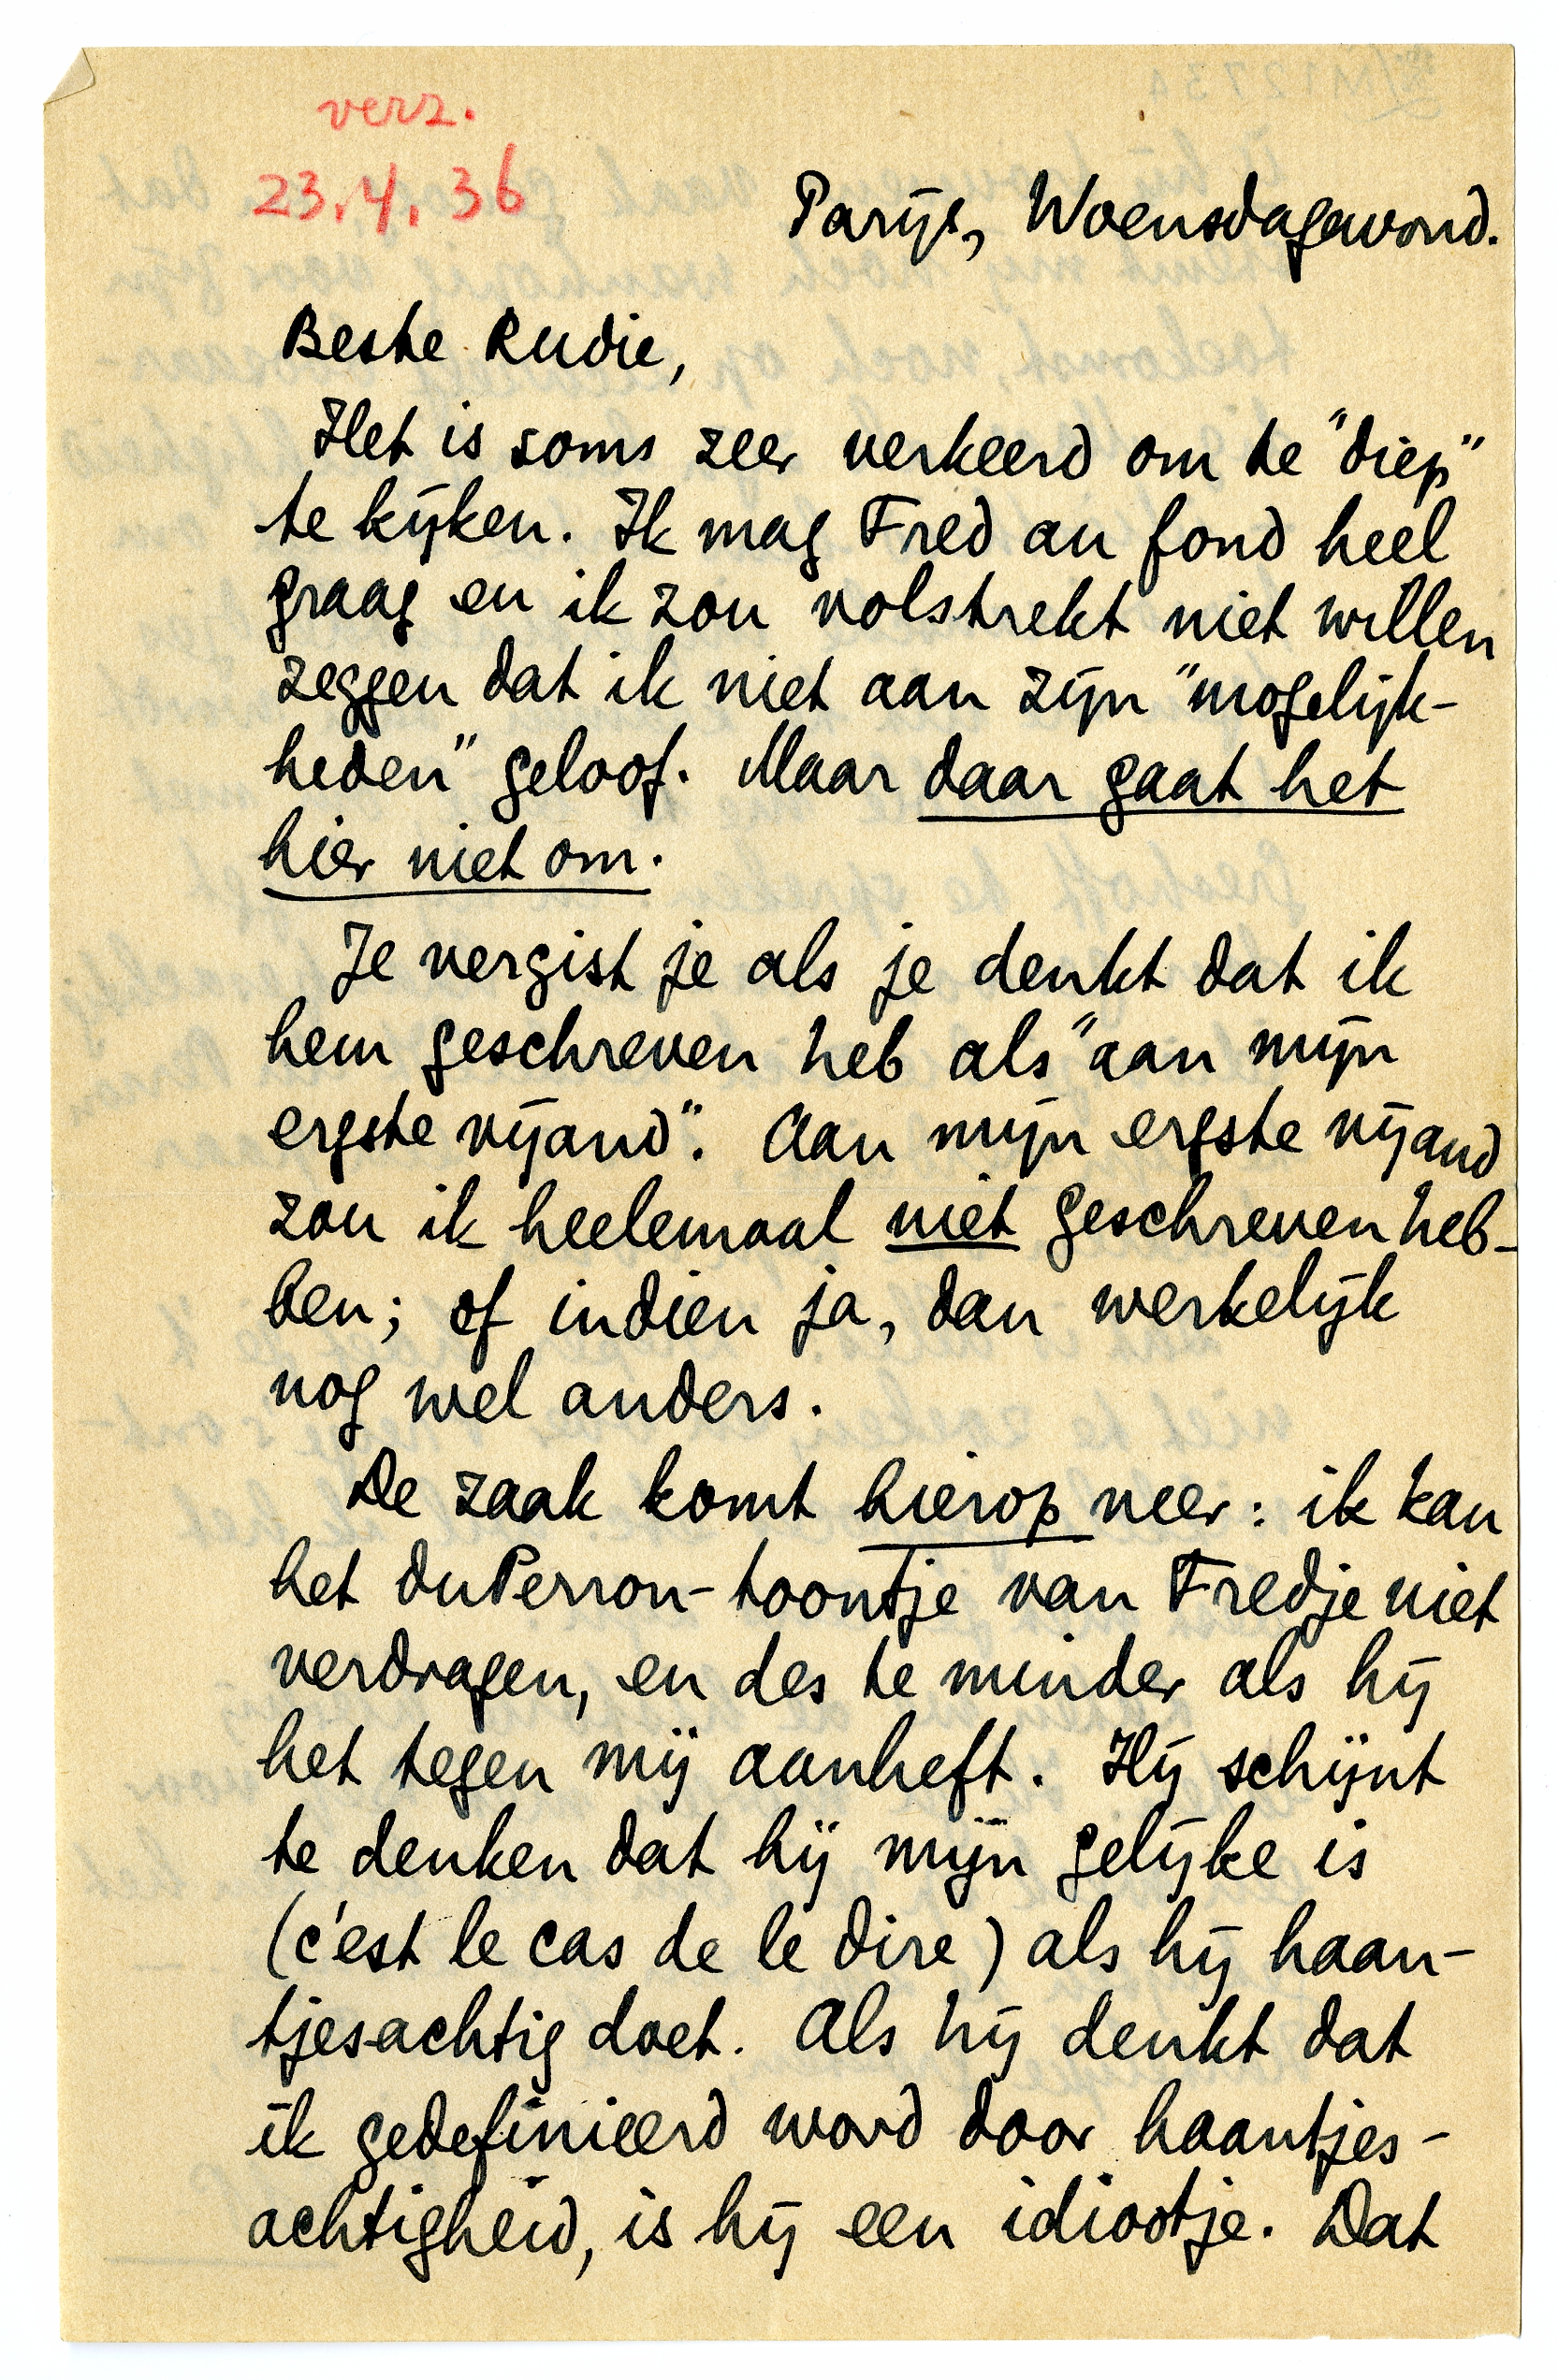 verz.
23.4.36
Parijs, Woensdagavond.
Beste Rudie,
Het is soms zeer verkeerd om te "diep"
te kijken. Ik mag Fred au fond heel
graag en ik zou volstrekt niet willen
zeggen dat ik niet aan zijn "mogelijk-
heden" geloof. Maar daar gaat het
hier niet om.
Je vergist je als je denkt dat ik
hem geschreven heb als "aan mijn
ergste vijand". Aan mijn ergste vijand
zou ik heelemaal niet geschreven heb-
ben; of indien ja, dan werkelijk
nog wel anders.
De zaak komt hierop neer: ik kan
het duPerron-toontje van Fredje niet
verdragen, en des te minder als hij
het tegen mij aanheft. Hij schijnt
te denken dat hij mijn gelijke is
(c'est le cas de le dire) als hij haan-
tjesachtig doet. Als hij denkt dat
ik gedefinieerd word door haantjes-
achtigheid, is hij een idiootje. Dat